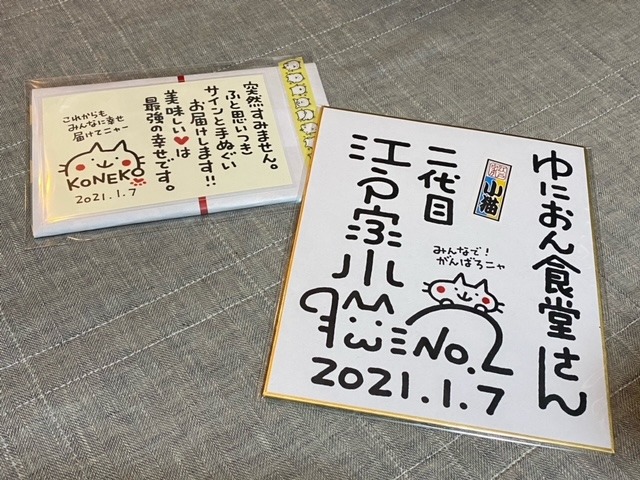 突然すみません。
ふと思いつき
サインと手ぬぐい
お届けします!!
美味しい♥は
最強の幸せです。
これからも
みんなに幸せ
届けてニャー
KONEKO
2021.1.7
ゆにおん食堂さん
二代目
江戸家小
小猫
みんなで!
がんばろニャ
No.2
2021.1.7